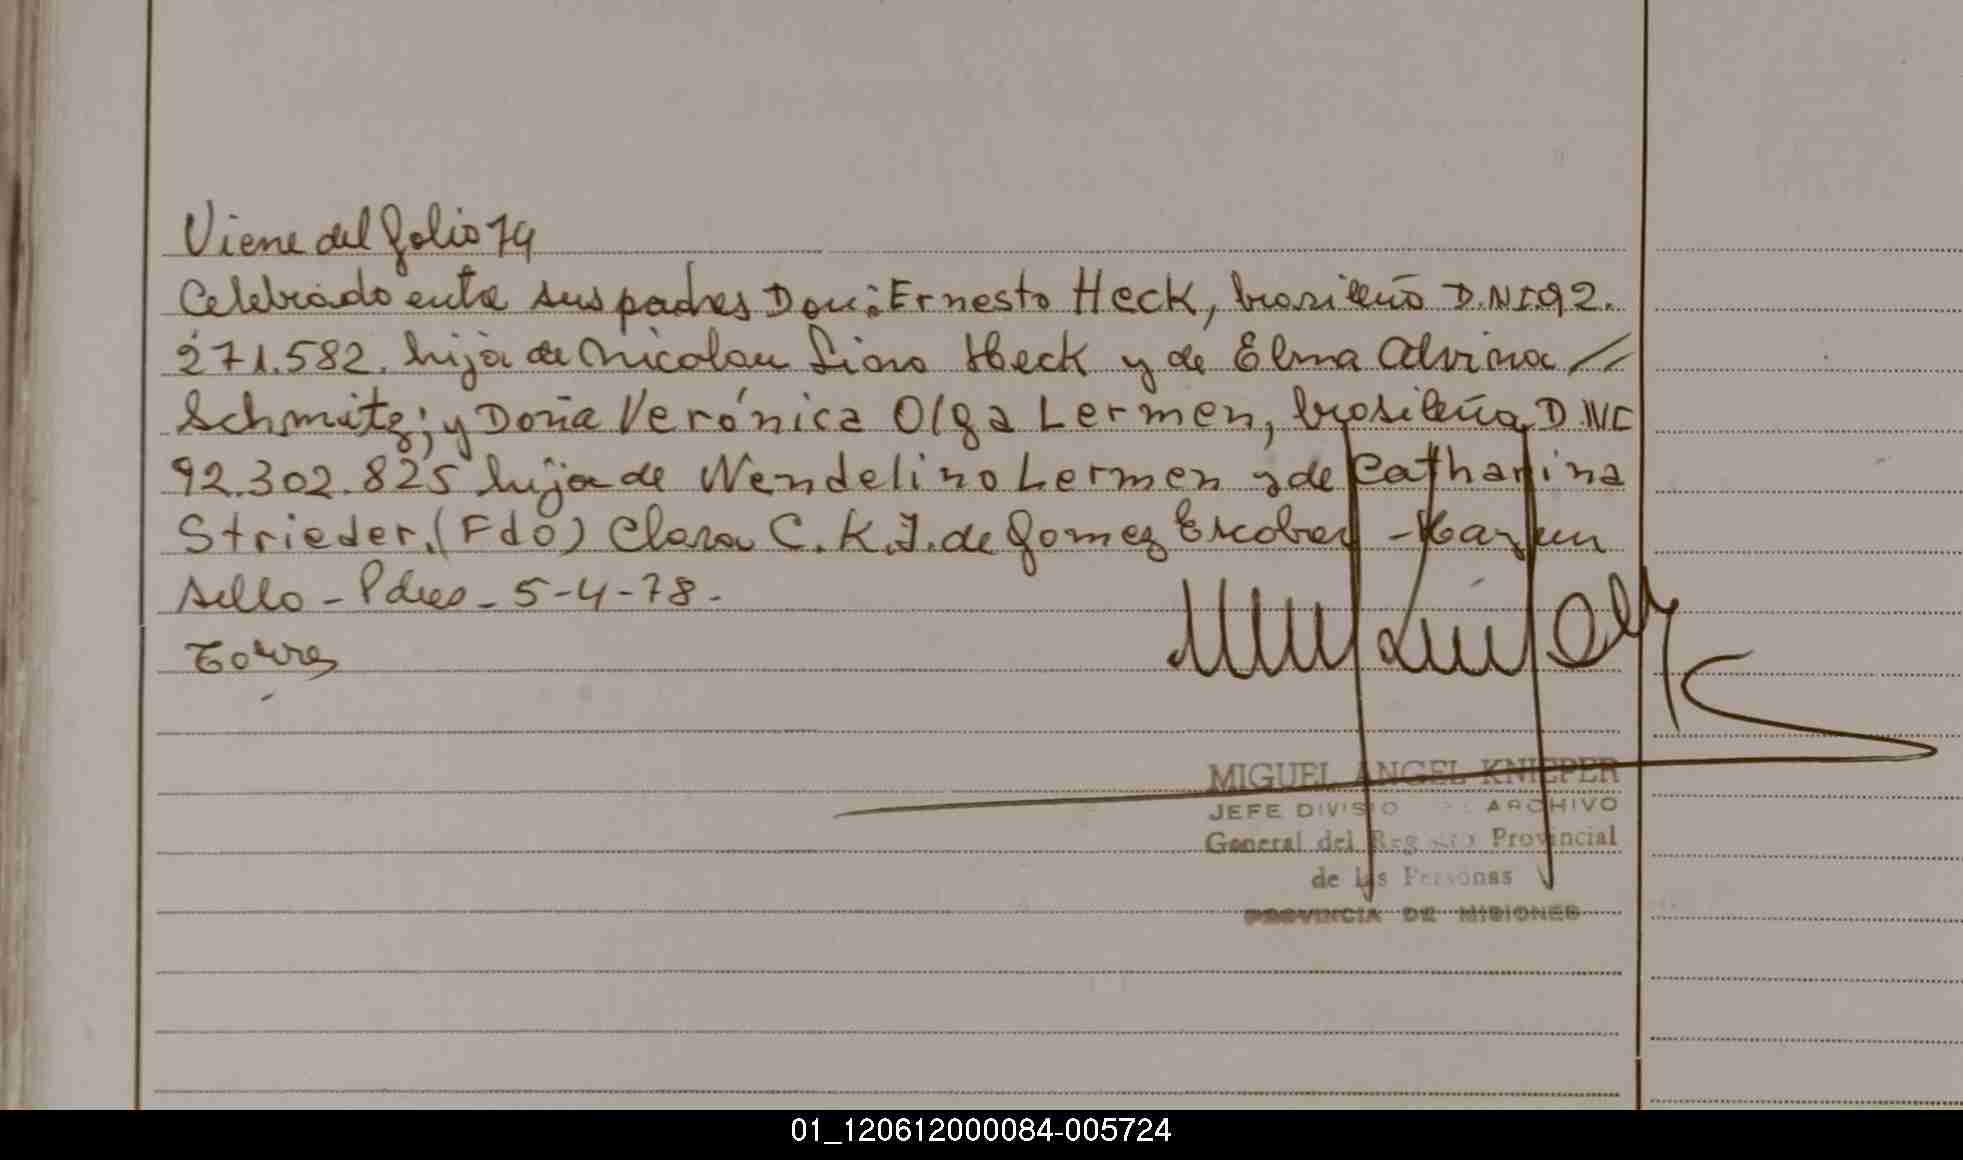 Viene del folio 74
Celebrado entre sus padres Don: Ernesto Heck, brasileño D.N.I.92.
271.582. hija de Nicolau Lino Heck y de Elma Alvina //
Schmitz; y Doña Verónica Olga Lermen, brasileña D.NI
92.302.825 hija de Wendelino Lermen y de Catharina
Strieder.(Fdo) Clara C. K.J. de Gomez Escobar - Hay un
sello - Pdas - 5-4-78.-
Torres
MIGUEL ANGEL KNIEPER
JEFE DIVISIO ARCHIVO
General del Registro Provincial
de las Personas
PROVINCIA DE MISIONES
01_120612000084-005724